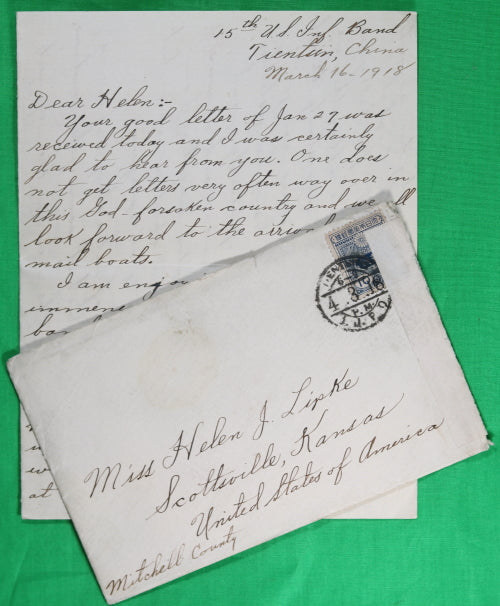 15th U.S. Inf. Band
Tientsin, China
March 16-1918
Dear Helen:-
Your good letter of Jan 27 was
received today and I was certainly
glad to hear from you. One does
not get letters very often way over in
this God-forsaken country and we all
look forward to the
mail boats.
I am
at
I.J.P.O
Miss Helen J. Lipke
Scottsville, Kansas
United States of America
Mitchell County